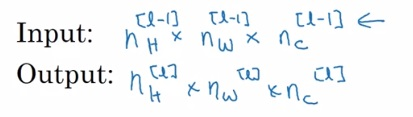 Input: n_H^[l-1] × n_W^[l-1] × n_C^[l-1] ←
Output: n_H^[l] × n_W^[l] × n_C^[l]